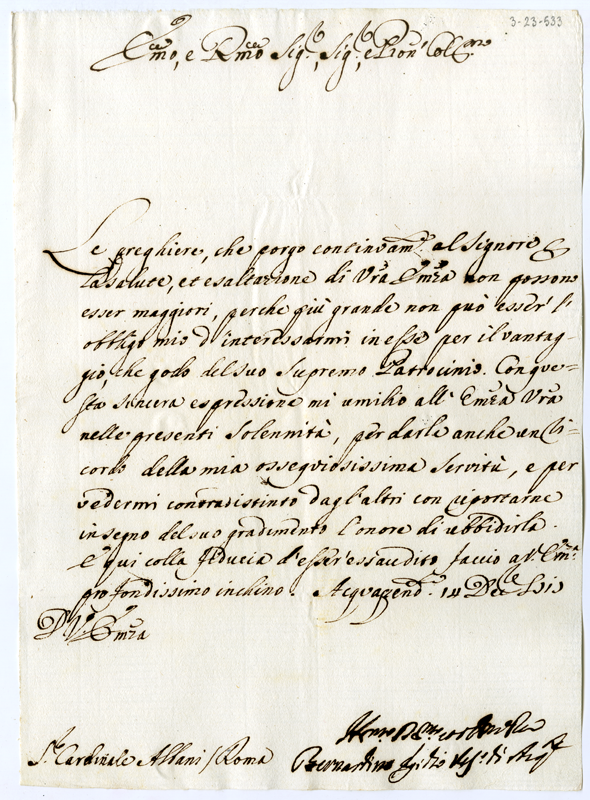 3-23-533
Emo, e Rmo Sig.r, Sig.r, e Pron Col.mo
Le preghiere, che porgo continvam.te al Signore p
la salute, et esaltazione di Vra Emza non possono
esser maggiori, perche più grande non può esser l'
obbligo mio d'interessarmi in esse per il vantag=
gio, che godo del suo supremo Patrocinio. Con que=
sta sincera espressione mi umilio all'Emza Vra
nelle presenti Solennità, per darle anche un Ri=
cordo della mia ossequiosissima servitù, e per
vedermi contradistinto dagl'altri con riportarne
in segno del suo gradimento l'onore di ubbidirla.
E qui colla fiducia d'esser'essaudito faccio a V. Em.za
profondissimo inchino. Acquapend.te Dec.e
Di V. Emza
S.r Cardinale Albani / Roma
Bernardino di Acq.te